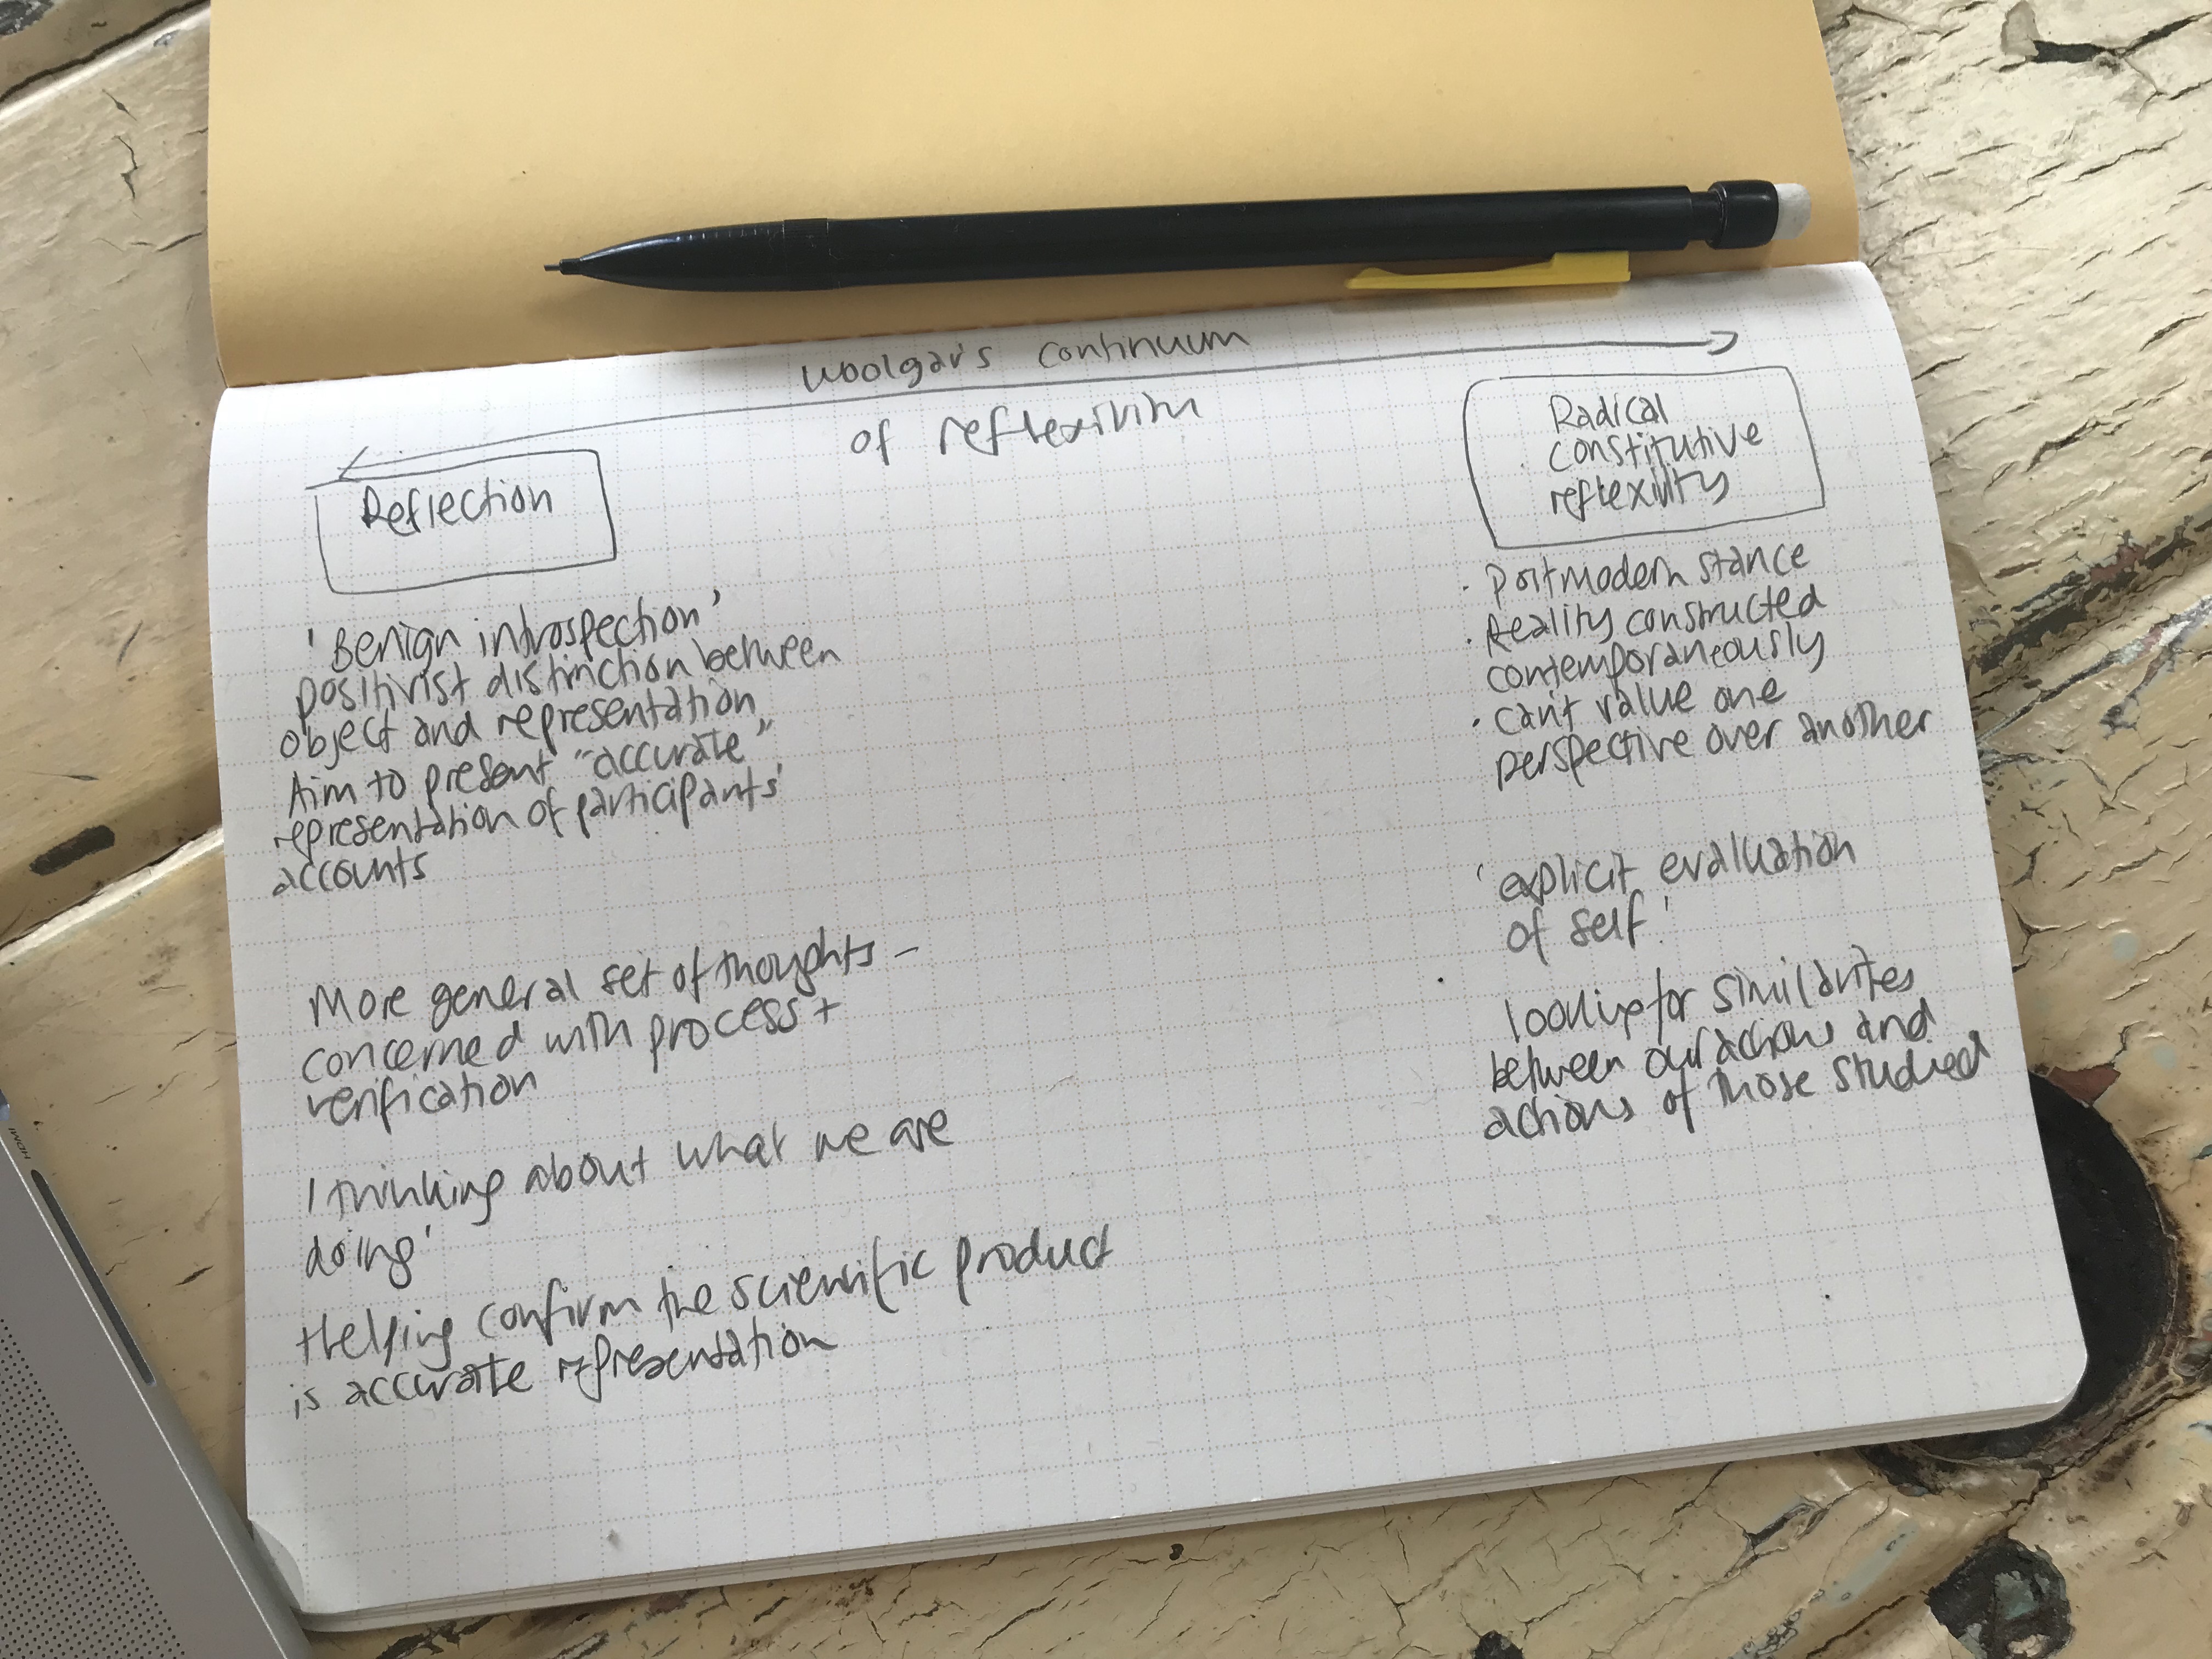 Woolgar's continuum
of reflexivity
Reflection
'Benign introspection'
positivist distinction between
object and representation
Aim to present "accurate"
representation of participants'
accounts
More general set of thoughts -
concerned with process +
verification
'thinking about what we are
doing'
Helping confirm the scientific product
is accurate representation
Radical
constitutive
reflexivity
· Postmodern stance
· Reality constructed
contemporaneously
· can't value one
perspective over another
'explicit evaluation
of self'
looking for similarites
between our actions and
actions of those studied
HDMI